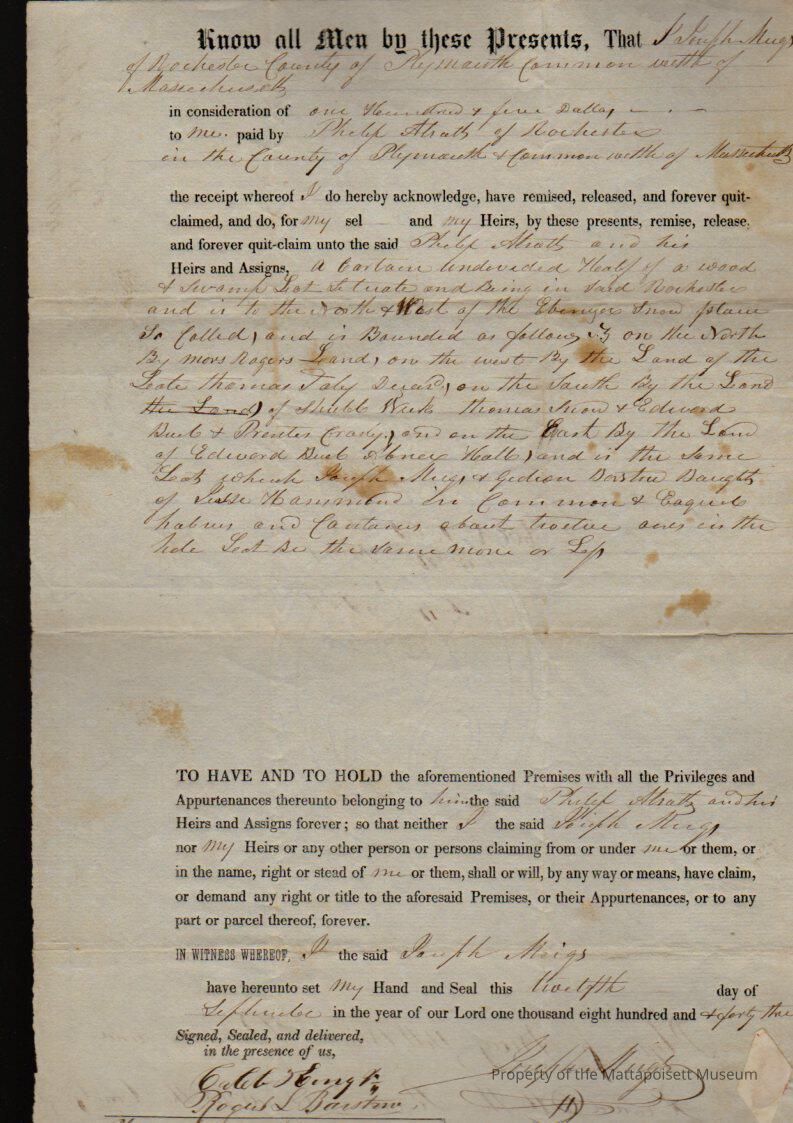 Know all Men by these Presents, That I Joseph Meigs
of Rochester County of Plymouth Common welth of
Massechusetts
in consideration of one Hundred & five Dallas
to me. paid by Philip Atsatt of Rochester
in the County of Plymouth & Common welth of Massechusetts
the receipt whereof I do hereby acknowledge, have remised, released, and forever quit-
claimed, and do, for my sel and my Heirs, by these presents, remise, release,
and forever quit-claim unto the said Philip Atsatt and his
Heirs and Assigns, a Certain undevided Half of a wood
& Swamp Lot Setuate and Being in Said Rochester
and is to the North & West of the Ebenezer Snow place
So Called, and is Bounded as follows on the North
By Rogers Land, on the west By the Land of the
Late thomas on the South By the Land
the Land of thomas Snow & Edward
& and on the East By the Land
of Edward Hall, and is the Same
Lot which Joseph Meigs & Gideon Barstow Baught
of Hammond in Common &
and about twelve acres in the
hole Lot Be the Same more or Less
TO HAVE AND TO HOLD the aforementioned Premises with all the Privileges and
Appurtenances thereunto belonging to him the said Philip Atsatt and his
Heirs and Assigns forever; so that neither I the said Joseph Meigs
nor my Heirs or any other person or persons claiming from or under me or them, or
in the name, right or stead of me or them, shall or will, by any way or means, have claim,
or demand any right or title to the aforesaid Premises, or their Appurtenances, or to any
part or parcel thereof, forever.
IN WITNESS WHEREOF, I the said Joseph Meigs
have hereunto set my Hand and Seal this twelfth day of
September in the year of our Lord one thousand eight hundred and & forty
Signed, Sealed, and delivered,
in the presence of us,
Caleb King Jr
Joseph Meigs
Property of the Mattapoisett Museum
Rogers L Barstow